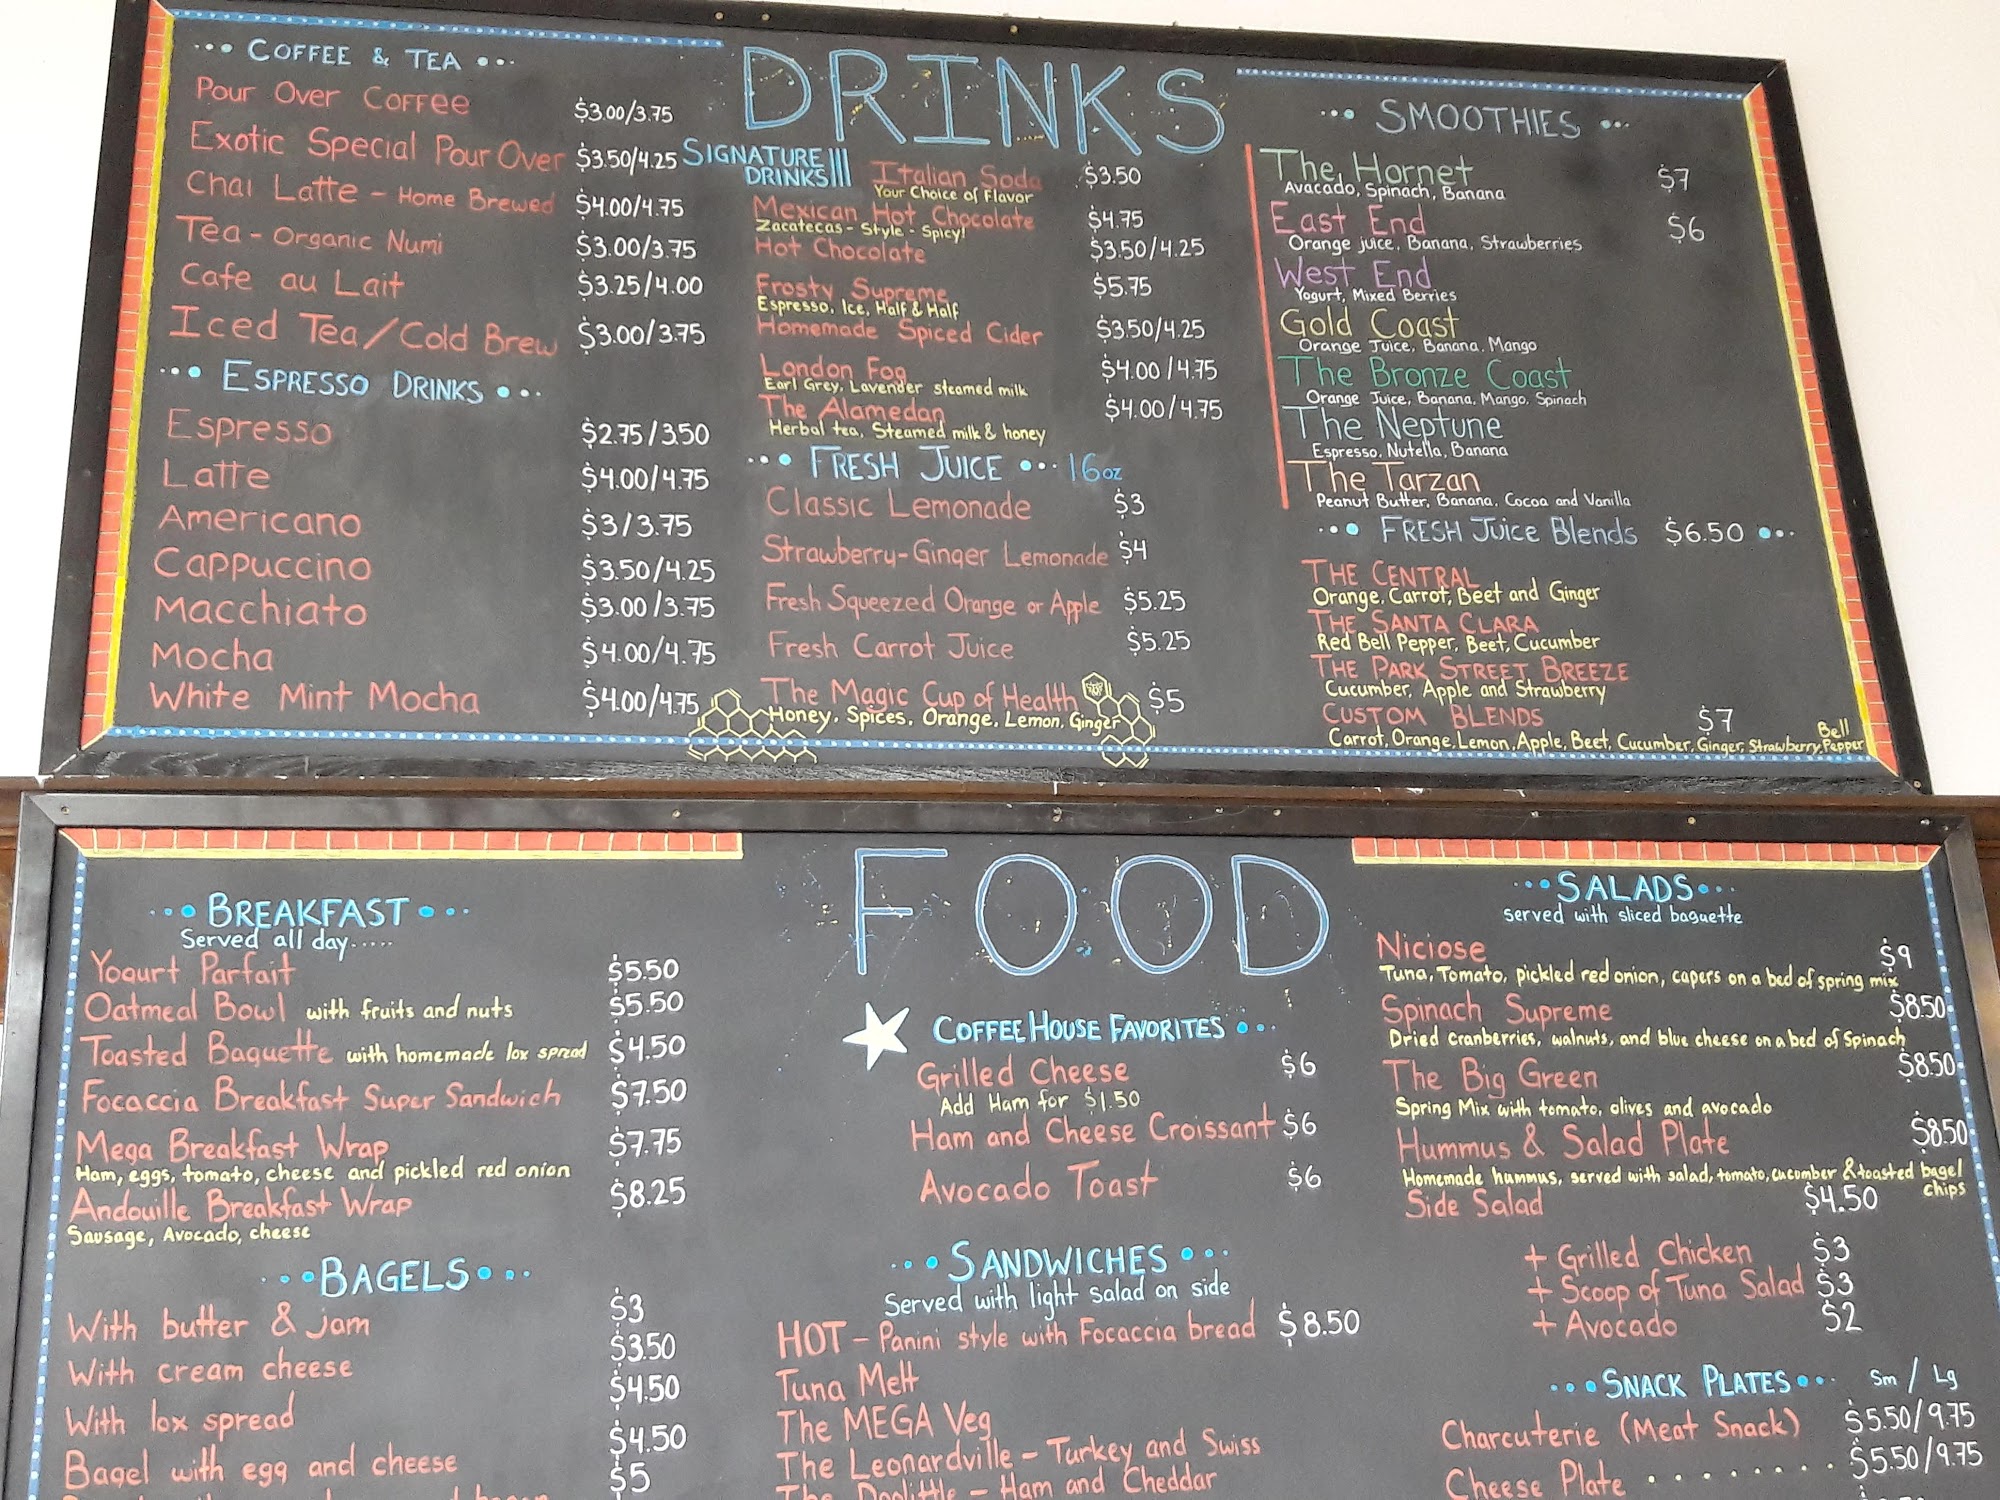 DRINKS
COFFEE & TEA
Pour Over Coffee $3.00/3.75
Exotic Special Pour Over $3.50/4.25
Chai Latte - Home Brewed $4.00/4.75
Tea - Organic Numi $3.00/3.75
Cafe au Lait $3.25/4.00
Iced Tea/Cold Brew $3.00/3.75
ESPRESSO DRINKS
Espresso $2.75/3.50
Latte $4.00/4.75
Americano $3/3.75
Cappuccino $3.50/4.25
Macchiato $3.00/3.75
Mocha $4.00/4.75
White Mint Mocha $4.00/4.75
SIGNATURE
DRINKS
Italian Soda $3.50
Your Choice of Flavor
Mexican Hot Chocolate $4.75
Zacatecas - Style - Spicy!
Hot Chocolate $3.50/4.25
Frosty Supreme $5.75
Espresso, Ice, Half & Half
Homemade Spiced Cider $3.50/4.25
London Fog $4.00/4.75
Earl Grey, Lavender steamed milk
The Alamedan $4.00/4.75
Herbal tea, Steamed milk & honey
FRESH JUICE 16oz
Classic Lemonade $3
Strawberry-Ginger Lemonade $4
Fresh Squeezed Orange or Apple $5.25
Fresh Carrot Juice $5.25
The Magic Cup of Health $5
Honey, Spices, Orange, Lemon, Ginger
SMOOTHIES
The Hornet $7
Avacado, Spinach, Banana
East End $6
Orange juice, Banana, Strawberries
West End
Yogurt, Mixed Berries
Gold Coast
Orange Juice, Banana, Mango
The Bronze Coast
Orange Juice, Banana, Mango, Spinach
The Neptune
Espresso, Nutella, Banana
The Tarzan
Peanut Butter, Banana, Cocoa and Vanilla
FRESH Juice Blends $6.50
THE CENTRAL
Orange, Carrot, Beet and Ginger
THE SANTA CLARA
Red Bell Pepper, Beet, Cucumber
THE PARK STREET BREEZE
Cucumber, Apple and Strawberry
CUSTOM BLENDS $7
Carrot, Orange, Lemon, Apple, Beet, Cucumber, Ginger, Strawberry, Bell Pepper
FOOD
BREAKFAST
Served all day.....
Yogurt Parfait $5.50
Oatmeal Bowl with fruits and nuts $5.50
Toasted Baguette with homemade lox spread $4.50
Focaccia Breakfast Super Sandwich $7.50
Mega Breakfast Wrap $7.75
Ham, eggs, tomato, cheese and pickled red onion
Andouille Breakfast Wrap $8.25
Sausage, Avocado, cheese
BAGELS
With butter & jam $3
With cream cheese $3.50
With lox spread $4.50
Bagel with egg and cheese $4.50
$5
COFFEE HOUSE FAVORITES
Grilled Cheese $6
Add Ham for $1.50
Ham and Cheese Croissant $6
Avocado Toast $6
SANDWICHES
Served with light salad on side
HOT - Panini style with Focaccia bread $8.50
Tuna Melt
The MEGA Veg
The Leonardville - Turkey and Swiss
The Doolittle - Ham and Cheddar
SALADS
served with sliced baguette
Niciose $9
Tuna, Tomato, pickled red onion, capers on a bed of spring mix
Spinach Supreme $8.50
Dried cranberries, walnuts, and blue cheese on a bed of Spinach
The Big Green $8.50
Spring Mix with tomato, olives and avocado
Hummus & Salad Plate $8.50
Homemade hummus, served with salad, tomato, cucumber & toasted bagel chips
Side Salad $4.50
+ Grilled Chicken $3
+ Scoop of Tuna Salad $3
+ Avocado $2
SNACK PLATES Sm / Lg
Charcuterie (Meat Snack) $5.50/9.75
Cheese Plate ........ $5.50/9.75